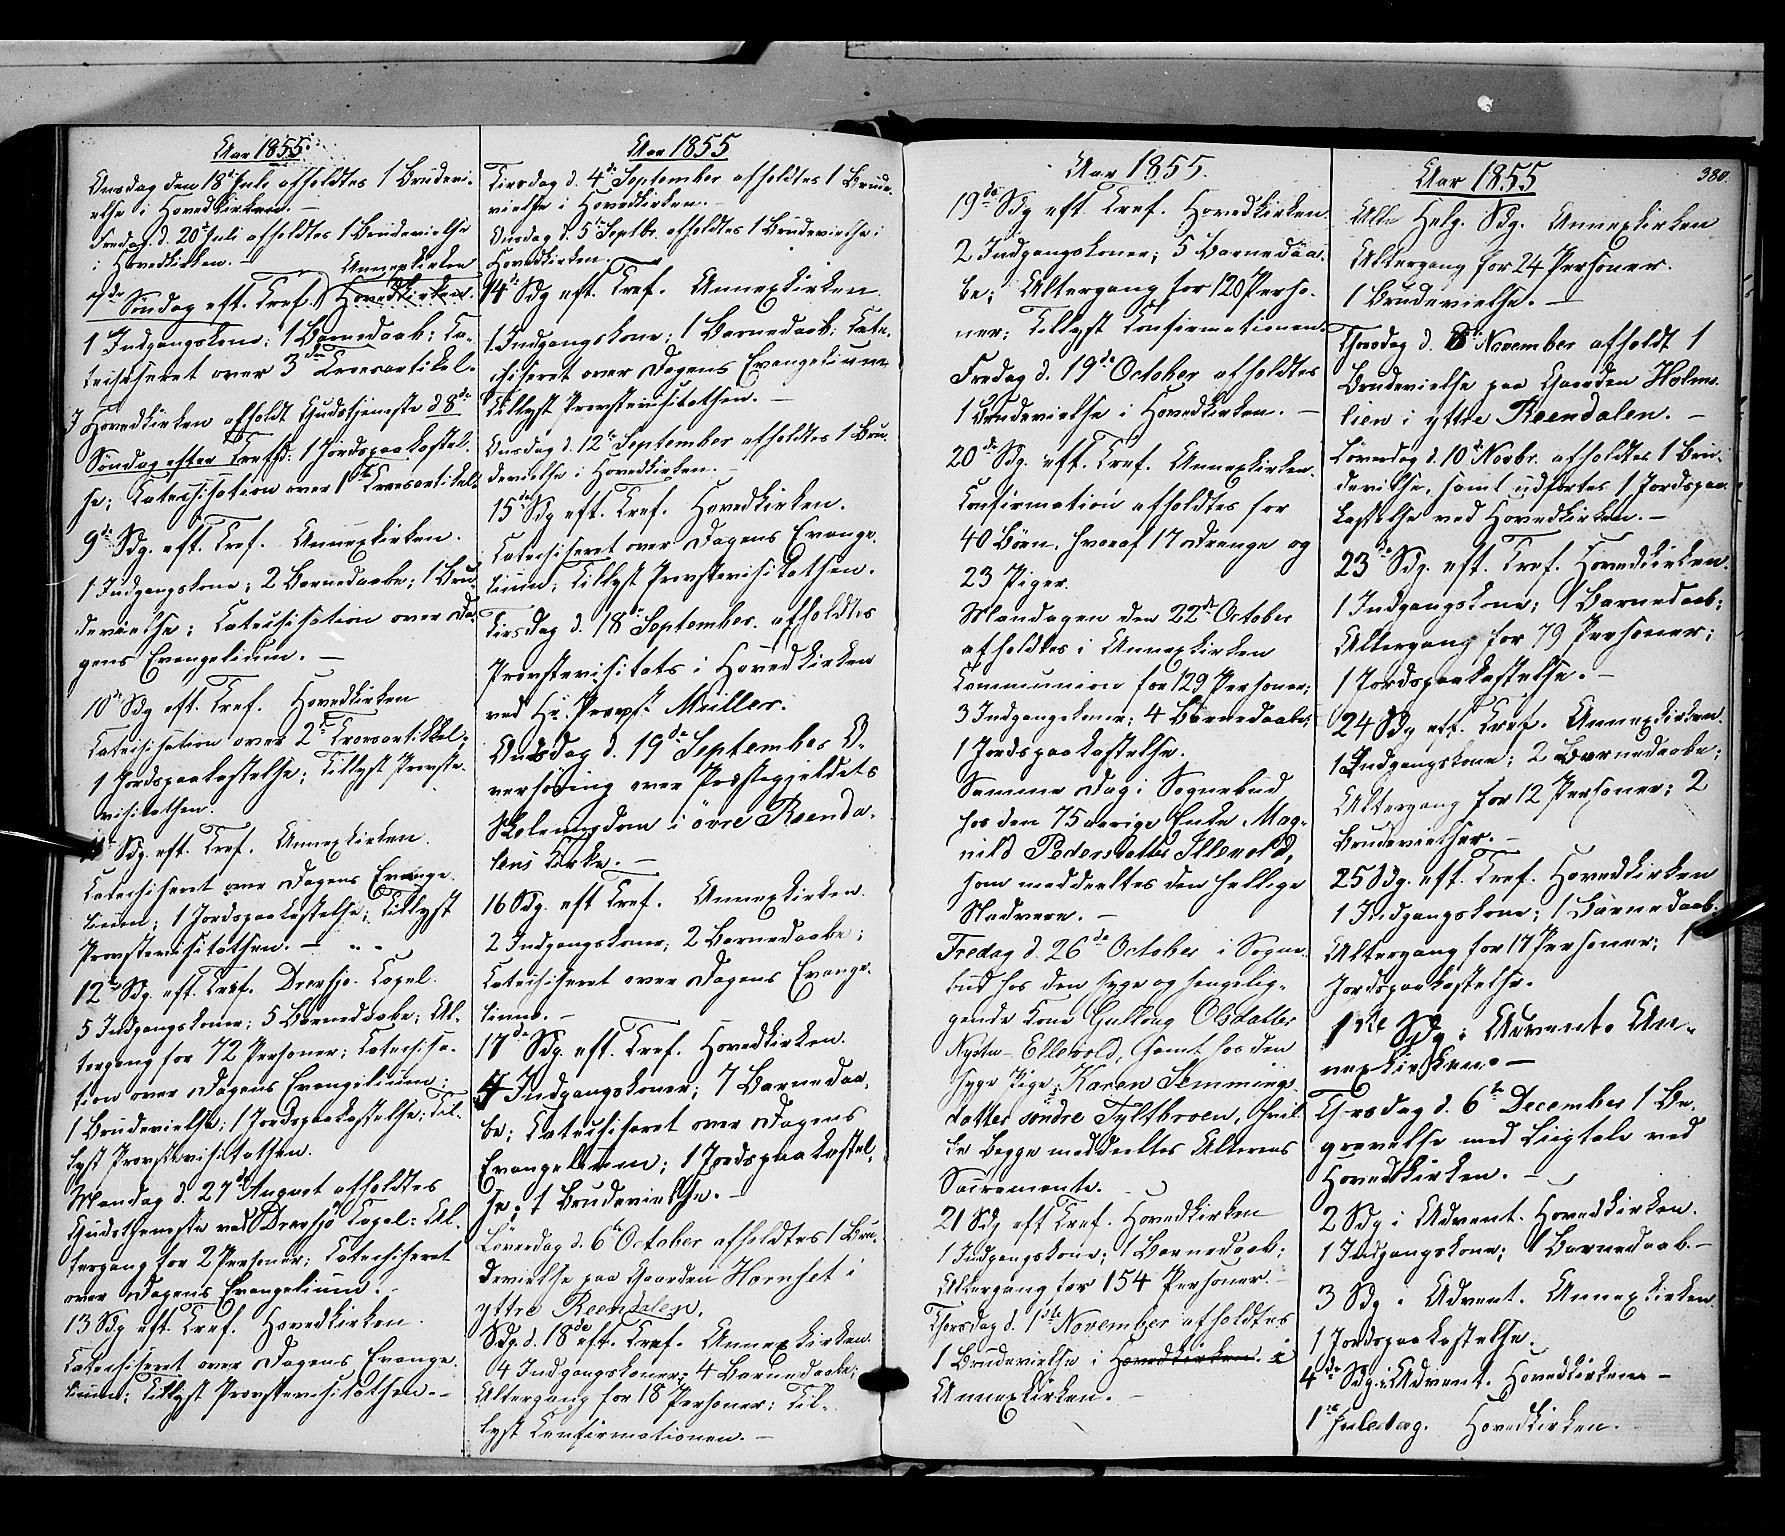 Aar 1855
Onsdag den 18de Juli afholdtes 1 Brudevi-
else i Hovedkirken. —
Fredag d. 20de Juli afholdtes 1 Brudevielse
i Hovedkirken. —
Annexkirken
7de Søndag eft. Tref. Hovedkirken.
1 Indgangskone; 1 Barnedaab; Ca-
techiseret over 3die Troesartikel.
I Hovedkirken afholdt Gudstjeneste d 8de
Søndag efter Trefd: 1 Jordspaakastel-
se; Catechisation over 1ste Troesartikel.
9de Sdg. eft. Tref. Annexkirken.
1 Indgangskone; 2 Barnedaabe; 1 Bru-
devielse; Catechisation over Da-
gens Evangelium. —
10de Sdg eft. Tref. Hovedkirken
Catechisation over 2den Troesartikkel.
1 Jordspaakastelse; Tillyst Provste-
visitatsen.
11te Sdg. eft. Tref. Annexkirken.
Catechiseret over Dagens Evange-
lium; 1 Jordspaakastelse; Tillyst
Provstevisitatsen. —
12te Sdg. eft. Tref. Drevsjø Capel.
5 Indgangskoner; 5 Barnedaabe; Al-
tergang for 72 Personer; Catechisa-
tion over Dagens Evangelium;
1 Brudevielse; 1 Jordspaakastelse; Til-
lyst Provstevisitatsen.
Mandag d. 27de August afholdtes
Gudstjeneste ved Drevsjø Capel: Al-
tergang for 2 Personer; Catechiseret
over Dagens Evangelium.
13 Sdg eft. Tref. Hovedkirken.
Catechiseret over Dagens Evange-
lium; Tillyst Provstevisitatsen. —
Aar 1855
Tirsdag d. 4de September afholdtes 1 Brude-
vielse i Hovedkirken. —
Onsdag d. 5te Septbr. afholdtes 1 Brudevielse i
Hovedkirken.
14de Sdg eft. Tref. Annexkirken.
1 Indgangskone; 1 Barnedaab; Cate-
chiseret over Dagens Evangelium
Tillyst Provstevisitatsen. —
Onsdag d. 12te September afholdtes 1 Bru-
devielse i Hovedkirken. —
15de Sdg eft. Tref. Hovedkirken.
Catechiseret over Dagens Evange-
lium; Tillyst Provstevisitatsen.
Tirsdag d. 18de September. afholdtes
Provstevisitats i Hovedkirken
ved Hr. Provst Müller.
Onsdag d. 19de September O-
verhøring over Præstegjeldets
Skoleungdom i øvre Reenda-
lens Kirke. —
16 Sdg. eft Tref. Annexkirken.
2 Indgangskoner; 2 Barnedaabe;
Catechiseret over Dagens Evange-
lium. —
17de Sdg. eft. Tref. Hovedkirken.
4 Indgangskoner; 7 Barnedaa-
be; Catechiseret over Dagens
Evangelium; 1 Jordspaakastel-
se; 1 Brudevielse. —
Løverdag d. 6te October afholdtes 1 Bru-
devielse paa Gaarden Hornset i
yttre Reendalen.
Sdg. d. 18de eft. Tref. Annexkirken.
4 Indgangskoner; 4 Barnedaabe;
Altergang for 18 Personer; Til-
lyst Confirmationen. —
Aar 1855.
19de Sdg eft. Tref. Hovedkirken.
2 Indgangskoner; 5 Barnedaa-
be; Altergang for 120 Perso-
ner; Tillyst Confirmationen.
Fredag d. 19de October afholdtes
1 Brudevielse i Hovedkirken. —
20de Sdg. eft. Tref. Annexkirken.
Confirmation afholdtes for
40 Børn, hvoraf 17 Drenge og
23 Piger.
Mandagen den 22de October
afholdtes i Annexkirken
Communion for 129 Personer;
3 Indgangskoner; 4 Barnedaabe;
1 Jordspaakastelse.
Samme Dag i Sognebud
hos den 75 aarige Enke Mag-
nild Pedersdatter Illevold,
som meddeeltes den hellige
Nadvere. —
Fredag d. 26de October i Sogne-
bud hos den syge og sengelig-
gende Kone Gullaug Olsdatter
Nystu-Ellevold, samt hos den
syge Pige Karen Hemmings-
datter søndre Tyltbroen, hvil-
ke begge meddeeltes Alterens
Sacramente.
21 Sdg eft Tref. Hovedkirken
1 Indgangskone; 1 Barnedaab;
Altergang for 154 Personer. —
Thorsdag d. 1ste November afholdtes
1 Brudevielse i Hovedkirken. i
Annexkirken. —
Aar 1855
380.
Alle Helg. Sdg. Annexkirken
Altergang for 24 Personer.
1 Brudevielse. —
Thorsdag d. 8de November afholdt 1
Brudevielse paa Gaarden Holm-
lien i yttre Reendalen. —
Løverdag d. 10de Novbr. afholdtes 1 Bru-
devielse, samt udførtes 1 Jordspaa-
kastelse ved Hovedkirken. —
23de Sdg. eft. Tref. Hovedkirken.
1 Indgangskone; 1 Barnedaab;
Altergang for 79 Personer;
1 Jordspaakastelse. —
24 Sdg eft. Tref. Annexkirken.
1 Indgangskone; 2 Barnedaabe;
Altergang for 12 Personer; 2
Brudevielser. —
25 Sdg. eft. Tref. Hovedkirken
1 Indgangskone; 1 Barnedaab;
Altergang for 17 Personer; 1
Jordspaakastelse.
1ste Sdg i Advent. An-
nexkirken. —
Thorsdag d. 6te December 1 Be-
gravelse med Liigtale ved
Hovedkirken. —
2 Sdg i Advent. Hovedkirken.
1 Indgangskone; 1 Barnedaab. —
3 Sdg i Advent. Annexkirken
1 Jordspaakastelse.
4de Sdg. i Advent. Hovedkirken. —
1ste Juledag. Hovedkirken. —